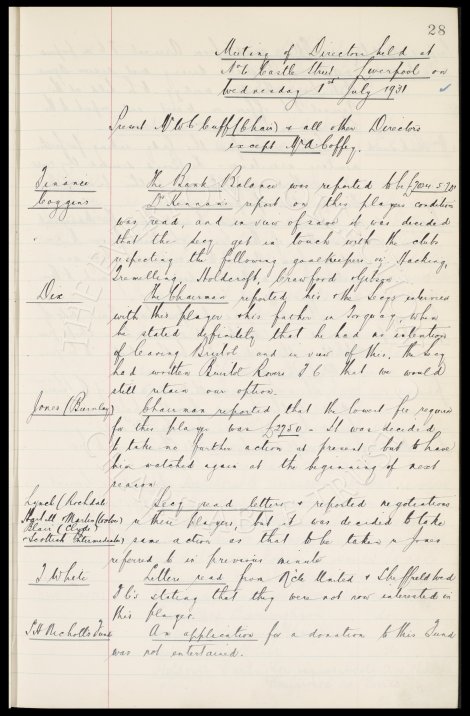 28
Meeting of Directors held at
No 6 Castle Street Liverpool on
Wednesday 1st July 1931
Present Mr W C Cuff (Chair) & all other Directors
except Mr A Coffey.
Finance The Bank Balance was reported to be £7024-5-7
Coggins Dr Kennan's report on this players condition
was read, and in view of same it was decided
that the Secy get in touch with the clubs
respecting the following goalkeepers viz Hacking,
Holdcroft, Crawford
Dix The Chairman reported his & the Secys interview
with this player & his father in Torquay, when
he stated definitely that he had no intention
of leaving Bristol and in view of this, the Secy
had written Bristol Rovers F C that we would
still retain our option.
Jones (Burnley) Chairman reported that the lowest fee required
for this player was £2950 - It was decided
to take no further action at present but to have
him watched again at the beginning of next
season
Lynch (Rochdale Secy read letters & reported negotiations
Martin (Bolton) re these players, but it was decided to take
Blair (Clyde)
& Scottish Intermediates same action as that to be taken re Jones
referred to in previous minute
T White Letters read from Man United & Sheffield Wed
F C's stating that they were not now interested in
this player.
S H Nicholls Fund An application for a donation to this Fund
was not entertained.